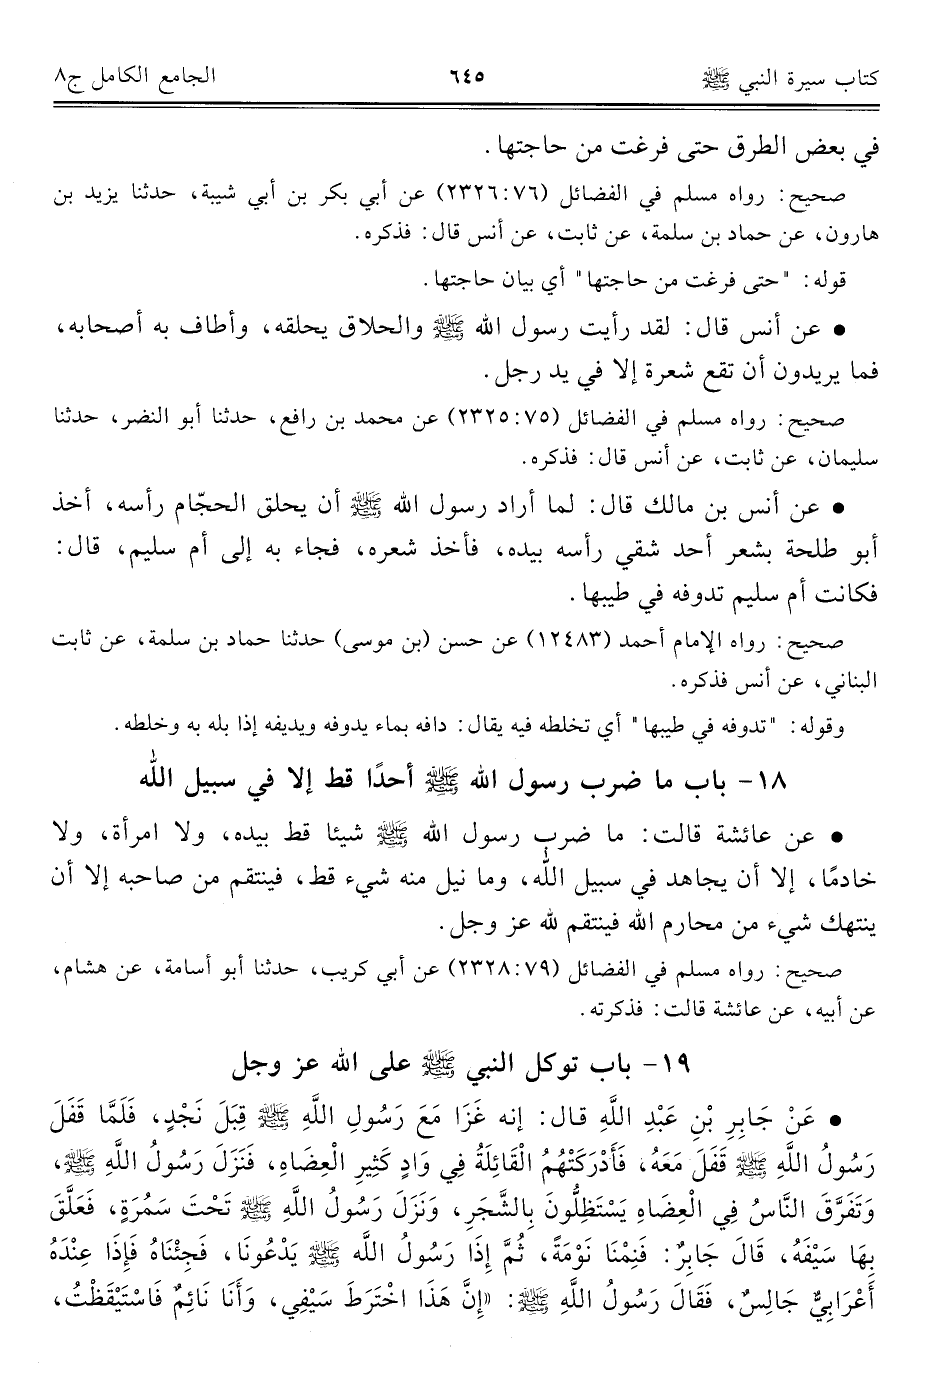 كتاب سيرة النبي ﷺ ٦٤٥ الجامع الكامل ج٨
في بعض الطرق حتى فرغت من حاجتها.
صحيح: رواه مسلم في الفضائل (٢٣٢٦:٧٦) عن أبي بكر بن أبي شيبة، حدثنا يزيد بن
هارون، عن حماد بن سلمة، عن ثابت، عن أنس قال: فذكره.
قوله: "حتى فرغت من حاجتها" أي بيان حاجتها.
● عن أنس قال: لقد رأيت رسول الله ﷺ والحلاق يحلقه، وأطاف به أصحابه،
فما يريدون أن تقع شعرة إلا في يد رجل.
صحيح: رواه مسلم في الفضائل (٢٣٢٥:٧٥) عن محمد بن رافع، حدثنا أبو النضر، حدثنا
سليمان، عن ثابت، عن أنس قال: فذكره.
● عن أنس بن مالك قال: لما أراد رسول الله ﷺ أن يحلق الحجّام رأسه، أخذ
أبو طلحة بشعر أحد شقي رأسه بيده، فأخذ شعره، فجاء به إلى أم سليم، قال:
فكانت أم سليم تدوفه في طيبها.
صحيح: رواه الإمام أحمد (١٢٤٨٣) عن حسن (بن موسى) حدثنا حماد بن سلمة، عن ثابت
البناني، عن أنس فذكره.
وقوله: "تدوفه في طيبها" أي تخلطه فيه يقال: دافه بماء يدوفه ويديفه إذا بله به وخلطه.
١٨- باب ما ضرب رسول الله ﷺ أحدًا قط إلا في سبيل الله
● عن عائشة قالت: ما ضرب رسول الله ﷺ شيئا قط بيده، ولا امرأة، ولا
خادمًا، إلا أن يجاهد في سبيل الله، وما نيل منه شيء قط، فينتقم من صاحبه إلا أن
ينتهك شيء من محارم الله فينتقم لله عز وجل.
صحيح: رواه مسلم في الفضائل (٢٣٢٨:٧٩) عن أبي كريب، حدثنا أبو أسامة، عن هشام،
عن أبيه، عن عائشة قالت: فذكرته.
١٩- باب توكل النبي ﷺ على الله عز وجل
● عَنْ جَابِرِ بْنِ عَبْدِ اللَّهِ قال: إنه غَزَا مَعَ رَسُولِ اللَّهِ ﷺ قِبَلَ نَجْدٍ، فَلَمَّا قَفَلَ
رَسُولُ اللَّهِ ﷺ قَفَلَ مَعَهُ، فَأَدْرَكَتْهُمُ الْقَائِلَةُ فِي وَادٍ كَثِيرِ الْعِضَاهِ، فَنَزَلَ رَسُولُ اللَّهِ ﷺ،
وَتَفَرَّقَ النَّاسُ فِي الْعِضَاهِ يَسْتَظِلُّونَ بِالشَّجَرِ، وَنَزَلَ رَسُولُ اللَّهِ ﷺ تَحْتَ سَمُرَةٍ، فَعَلَّقَ
بِهَا سَيْفَهُ، قَالَ جَابِرٌ: فَنِمْنَا نَوْمَةً، ثُمَّ إِذَا رَسُولُ اللَّهِ ﷺ يَدْعُونَا، فَجِئْنَاهُ فَإِذَا عِنْدَهُ
أَعْرَابِيٌّ جَالِسٌ، فَقَالَ رَسُولُ اللَّهِ ﷺ: «إِنَّ هَذَا اخْتَرَطَ سَيْفِي، وَأَنَا نَائِمٌ فَاسْتَيْقَظْتُ،